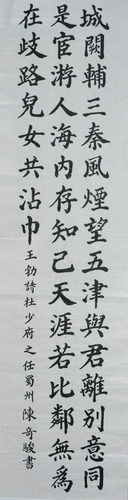 城闕輔三秦風煙望五津與君離別意同
是宦游人海內存知己天涯若比鄰無為
在歧路兒女共沾巾
王勃詩杜少府之任蜀州陳奇駿書